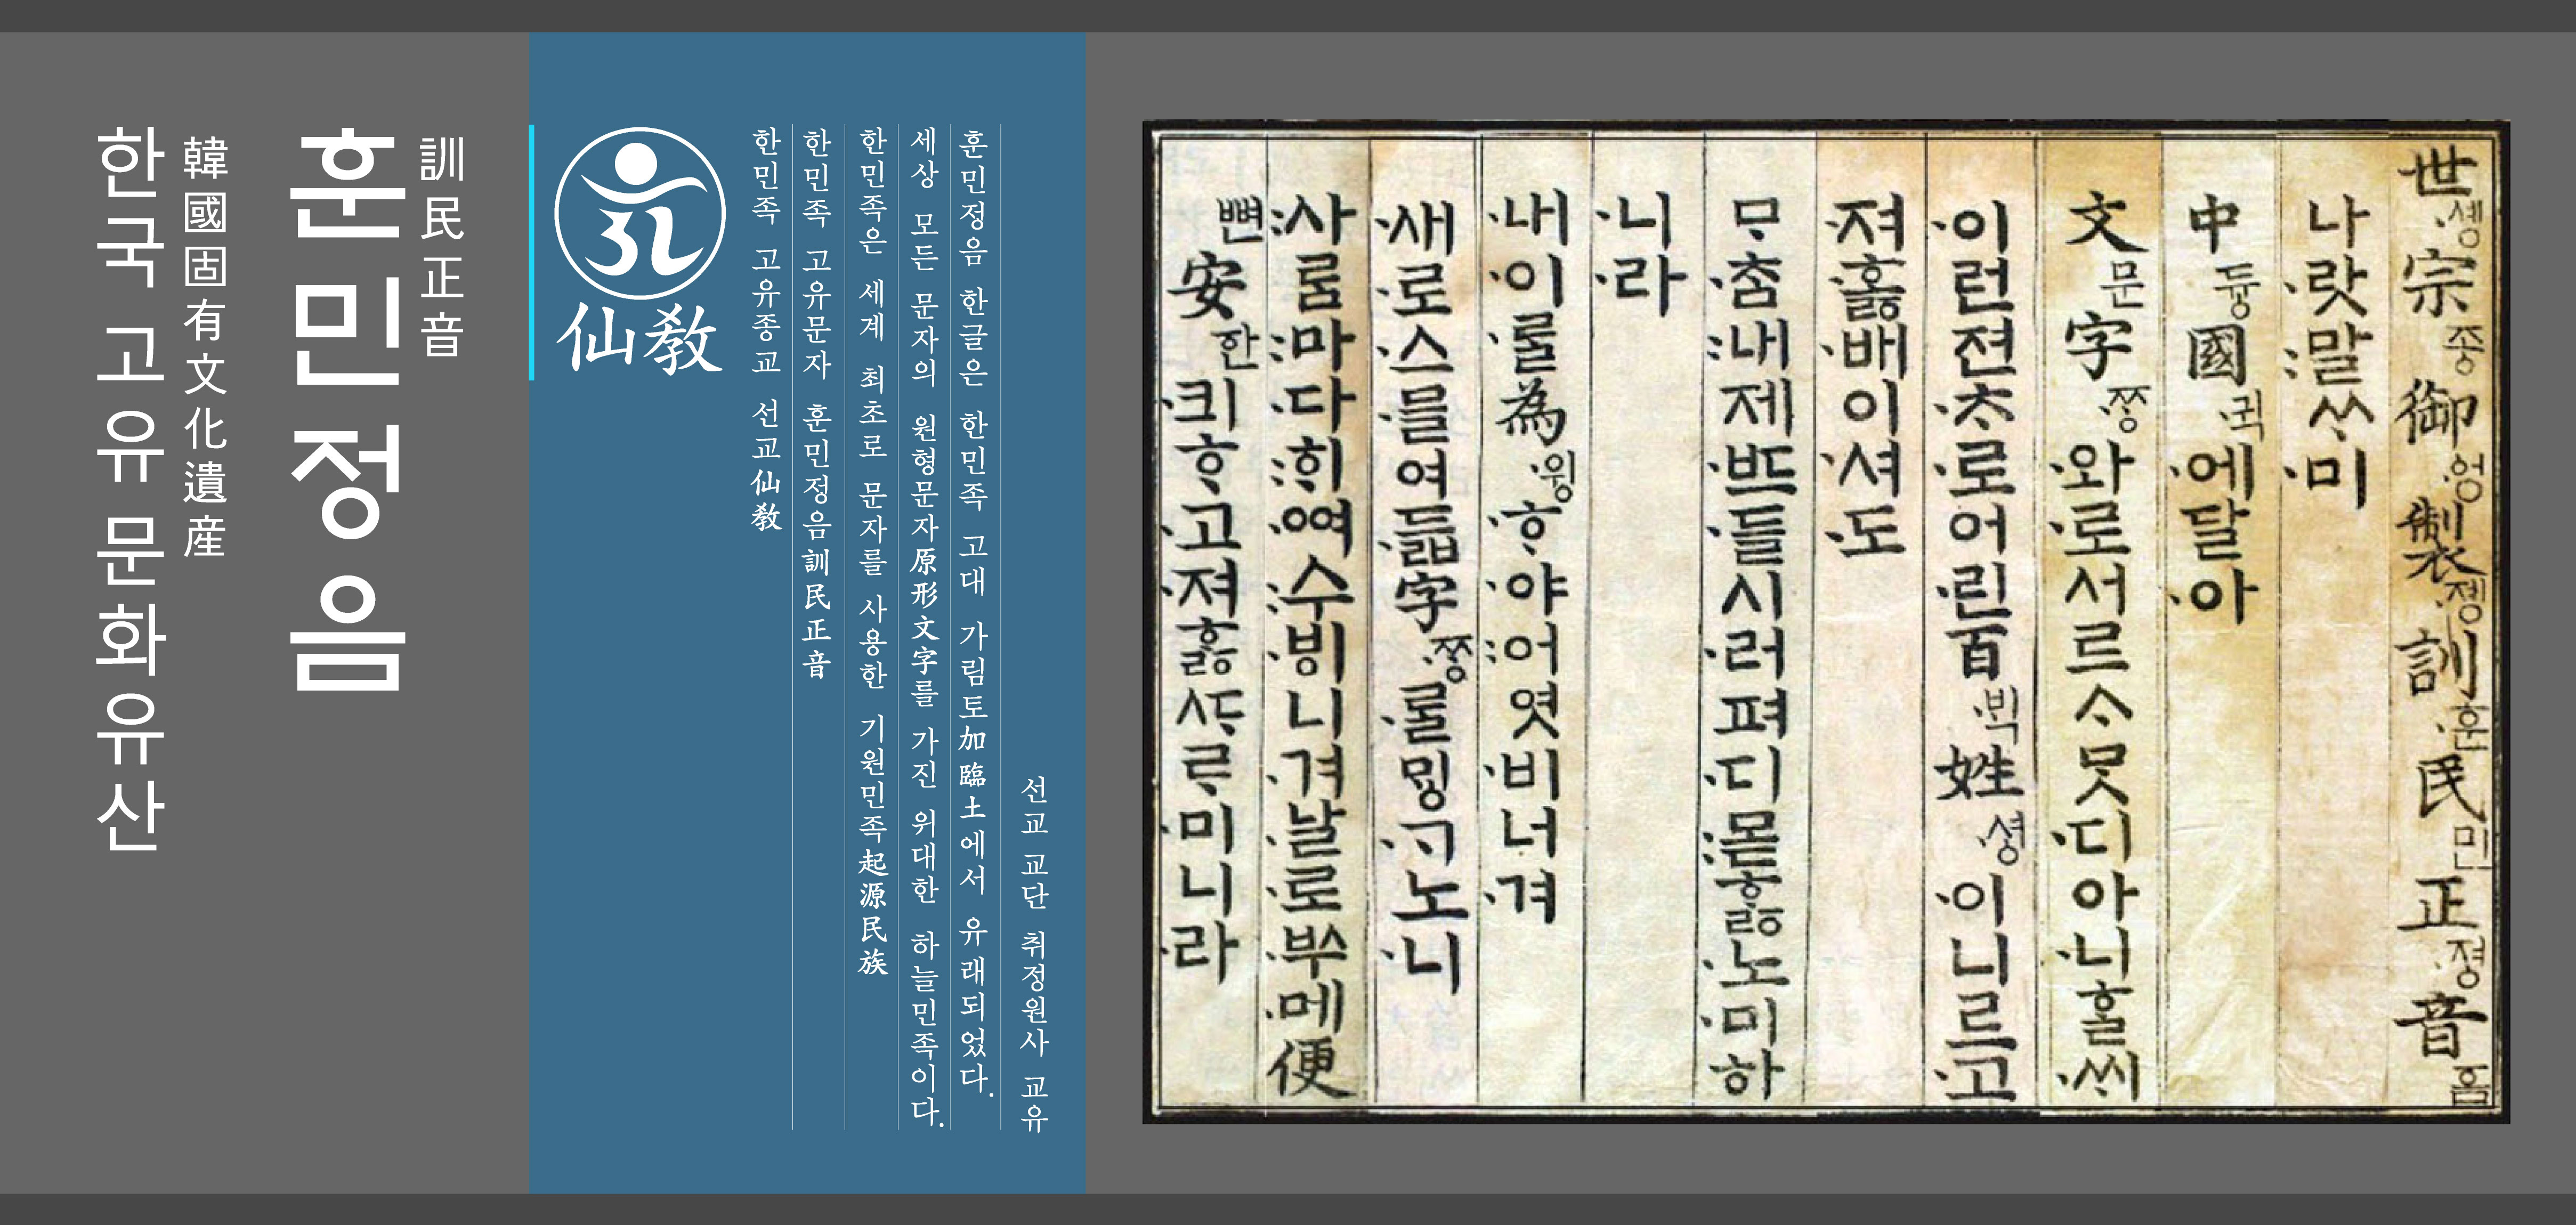 한국 고유 문화유산
韓國固有文化遺産
훈민정음
訓民正音
仙敎
한민족 고유종교 선교仙敎
한민족 고유문자 훈민정음訓民正音
한민족은 세계 최초로 문자를 사용한 기원민족起源民族
세상 모든 문자의 원형문자原形文字를 가진 위대한 하늘민족이다.
훈민정음 한글은 한민족 고대 가림토加臨土에서 유래되었다.
선교 교단 취정원사 교유
世솅宗조ᇰ御엉製졩訓훈民민正져ᇰ音ᅙᅳᆷ
나랏말ᄊᆞ미
中듀ᇰ國귁에달아
文문字ᄍᆞᆼ와로서르ᄉᆞᄆᆞᆺ디아니ᄒᆞᆯᄊᆡ
이런젼ᄎᆞ로어린百ᄇᆡᆨ姓셔ᇰ이니르고
져ᄒᆞᇙ배이셔도
ᄆᆞᄎᆞᆷ내제ᄠᅳ들시러펴디몯ᄒᆞᇙ노미하
니라
내이ᄅᆞᆯ為윙ᄒᆞ야어엿비너겨
새로스믈여듧字ᄍᆞᆼᄅᆞᆯᄆᆡᇰᄀᆞ노니
사ᄅᆞᆷ마다ᄒᆡᅇᅧ수ᄫᅵ니겨날로ᄡᅮ메便
뼌安한킈ᄒᆞ고져ᄒᆞᇙᄯᆞᄅᆞ미니라